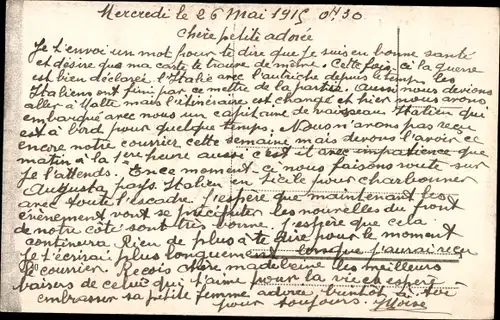 Mercredi le 26 Mai 1915 0h30
Chère petite adorée
Je t'envoi un mot pour te dire que je suis en bonne santé
et désire que ma carte te trouve de même. Cette fois ci la guerre
est bien déclarée l'Italie avec l'autriche depuis le temps les
Italiens ont fini par ce mettre de la partie. Aussi nous devions
aller à Malte mais l'itinéraire est changé et hier nous avons
embarqué avec nous un capitaine de vaisseau Italien qui
est à bord pour quelque temps. Nous n'avons pas reçu
encore notre courrier cette semaine mais devons l'avoir ce
matin à la 1ere heure aussi c'est avec impatience que
je l'attends. En ce moment ci nous faisons route sur
Augusta pays Italien en Sicile pour charbonner
avec toute l'escadre. J'espère que maintenant les
événement vont se précipiter les nouvelles du front
de notre côté sont très bonne. J'espère que cela
continura. Rien de plus à te dire pour le moment
je t'écrirai plus longuement lorsque j'aurai reçu
le courrier. Reçois chère madeleine les meilleurs
baisers de celui qui t'aime pour la vie et espère
embrasser sa petite femme adorée bientôt à toi
pour toujours.